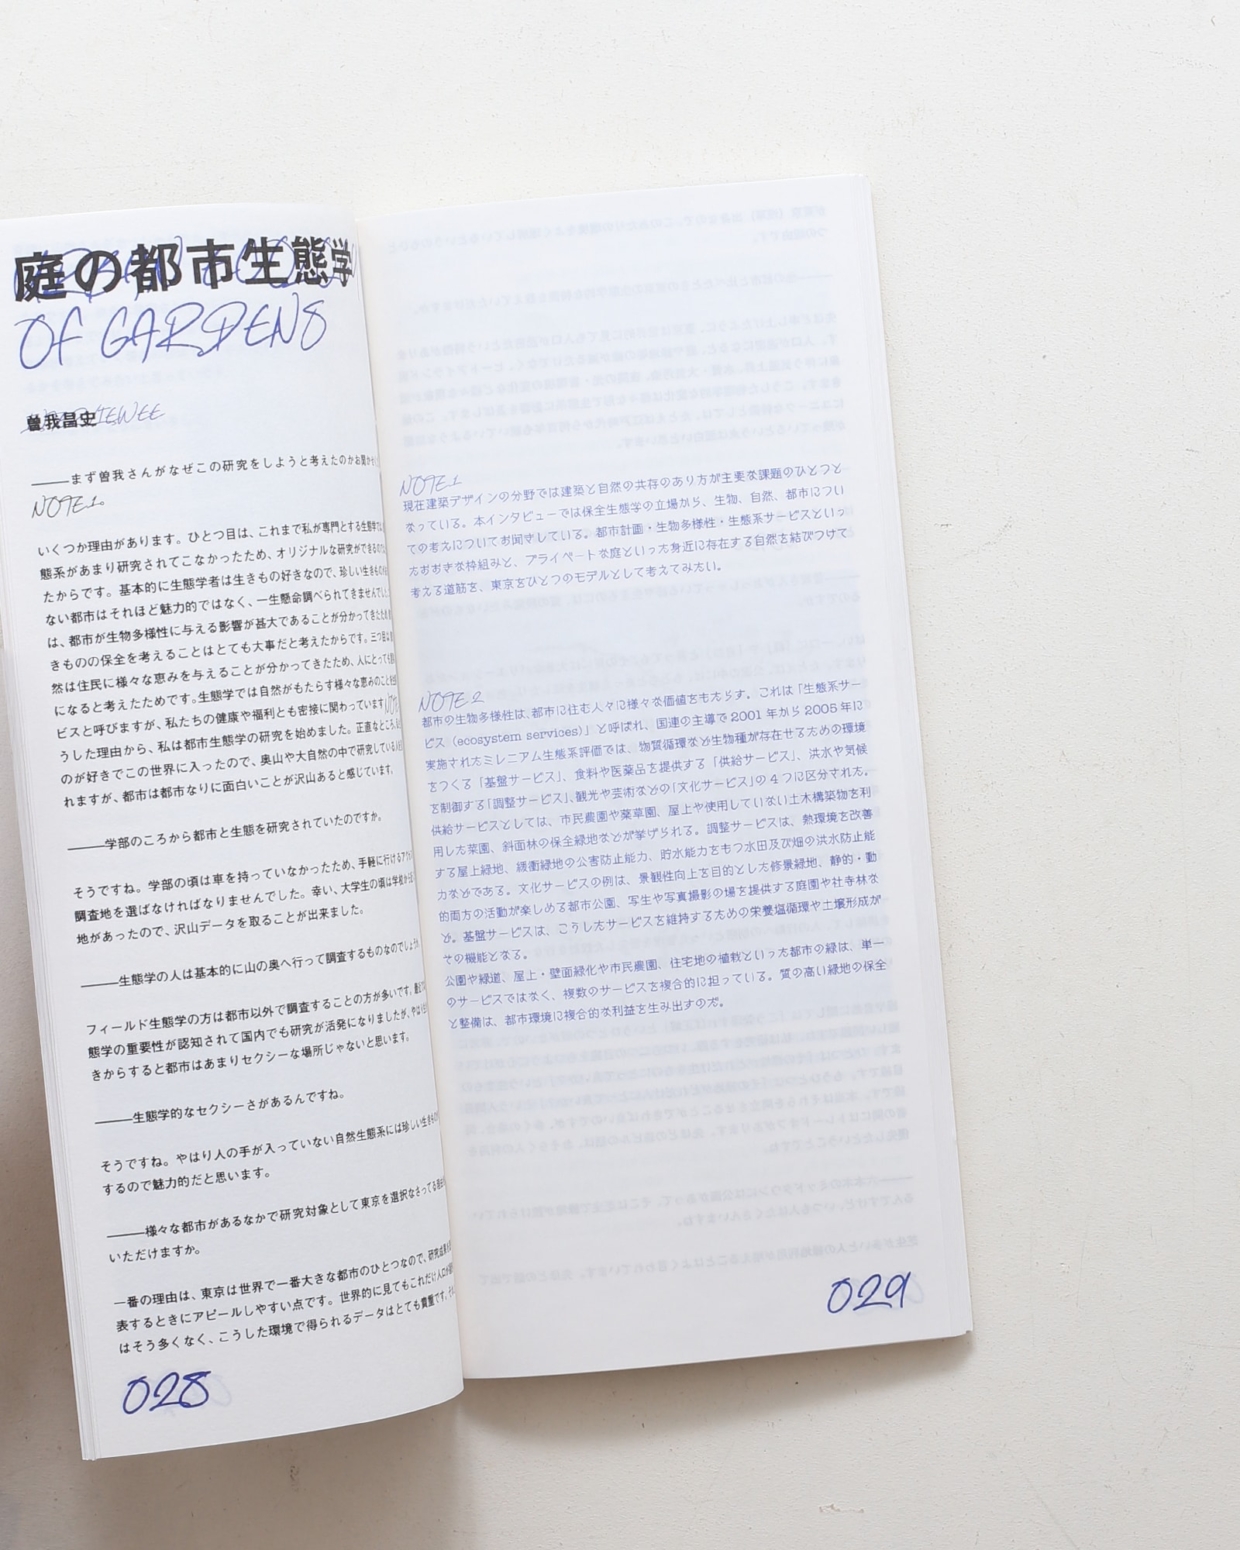 庭の都市生態学
OF GARDENS
曽我昌史
INTERVIEWEE
――まず曽我さんがなぜこの研究をしようと考えたのかお聞か
NOTE1。
いくつか理由があります。ひとつ目は、これまで私が専門とする生態学
態系があまり研究されてこなかったため、オリジナルな研究ができる
たからです。基本的に生態学者は生きもの好きなので、珍しい生きもの
ない都市はそれほど魅力的ではなく、一生懸命調べられてきませんでし
は、都市が生物多様性に与える影響が甚大であることが分かってきたため
きものの保全を考えることはとても大事だと考えたからです。三つ
然は住民に様々な恵みを与えることが分かってきたため、人にとって
になると考えたためです。生態学では自然がもたらす様々な恵みのこと
ビスと呼びますが、私たちの健康や福利とも密接に関わっています
うした理由から、私は都市生態学の研究を始めました。正直なところ、
のが好きでこの世界に入ったので、奥山や大自然の中で研究している
れますが、都市は都市なりに面白いことが沢山あると感じています。
――学部のころから都市と生態を研究されていたのですか。
そうですね。学部の頃は車を持っていなかったため、手軽に行ける
調査地を選ばなければなりませんでした。幸い、大学生の頃は学校
地があったので、沢山データを取ることが出来ました。
――生態学の人は基本的に山の奥へ行って調査するものなのでしょうか
フィールド生態学の方は都市以外で調査することの方が多いです。
態学の重要性が認知されて国内でも研究が活発になりましたが、
きからすると都市はあまりセクシーな場所じゃないと思います。
――生態学的なセクシーさがあるんですね。
そうですね。やはり人の手が入っていない自然生態系には珍しい生きもの
するので魅力的だと思います。
――様々な都市があるなかで研究対象として東京を選択なさってる
いただけますか。
一番の理由は、東京は世界で一番大きな都市のひとつなので、研究成果
表するときにアピールしやすい点です。世界的に見てもこれだけ人口が
はそう多くなく、こうした環境で得られるデータはとても貴重です。
028
NOTE1
現在建築デザインの分野では建築と自然の共存のあり方が主要な課題のひとつと
なっている。本インタビューでは保全生態学の立場から、生物、自然、都市につい
ての考えについてお聞きしている。都市計画・生物多様性・生態系サービスといっ
たおおきな枠組みと、プライベートな庭といった身近に存在する自然を結びつけて
考える道筋を、東京をひとつのモデルとして考えてみたい。
NOTE2
都市の生物多様性は、都市に住む人々に様々な価値をもたらす。これは「生態系サー
ビス（ecosystem services）」と呼ばれ、国連の主導で 2001 年から 2005 年に
実施されたミレニアム生態系評価では、物質循環など生物種が存在するための環境
をつくる「基盤サービス」、食料や医薬品を提供する「供給サービス」、洪水や気候
を制御する「調整サービス」、観光や芸術などの「文化サービス」の 4 つに区分された。
供給サービスとしては、市民農園や薬草園、屋上や使用していない土木構築物を利
用した菜園、斜面林の保全緑地などが挙げられる。調整サービスは、熱環境を改善
する屋上緑地、緩衝緑地の公害防止能力、貯水能力をもつ水田及び畑の洪水防止能
力などである。文化サービスの例は、景観性向上を目的とした修景緑地、静的・動
的両方の活動が楽しめる都市公園、写生や写真撮影の場を提供する庭園や社寺林な
ど。基盤サービスは、こうしたサービスを維持するための栄養塩循環や土壌形成が
その機能となる。
公園や緑道、屋上・壁面緑化や市民農園、住宅地の植栽といった都市の緑は、単一
のサービスではなく、複数のサービスを複合的に担っている。質の高い緑地の保全
と整備は、都市環境に複合的な利益を生み出すのだ。
029